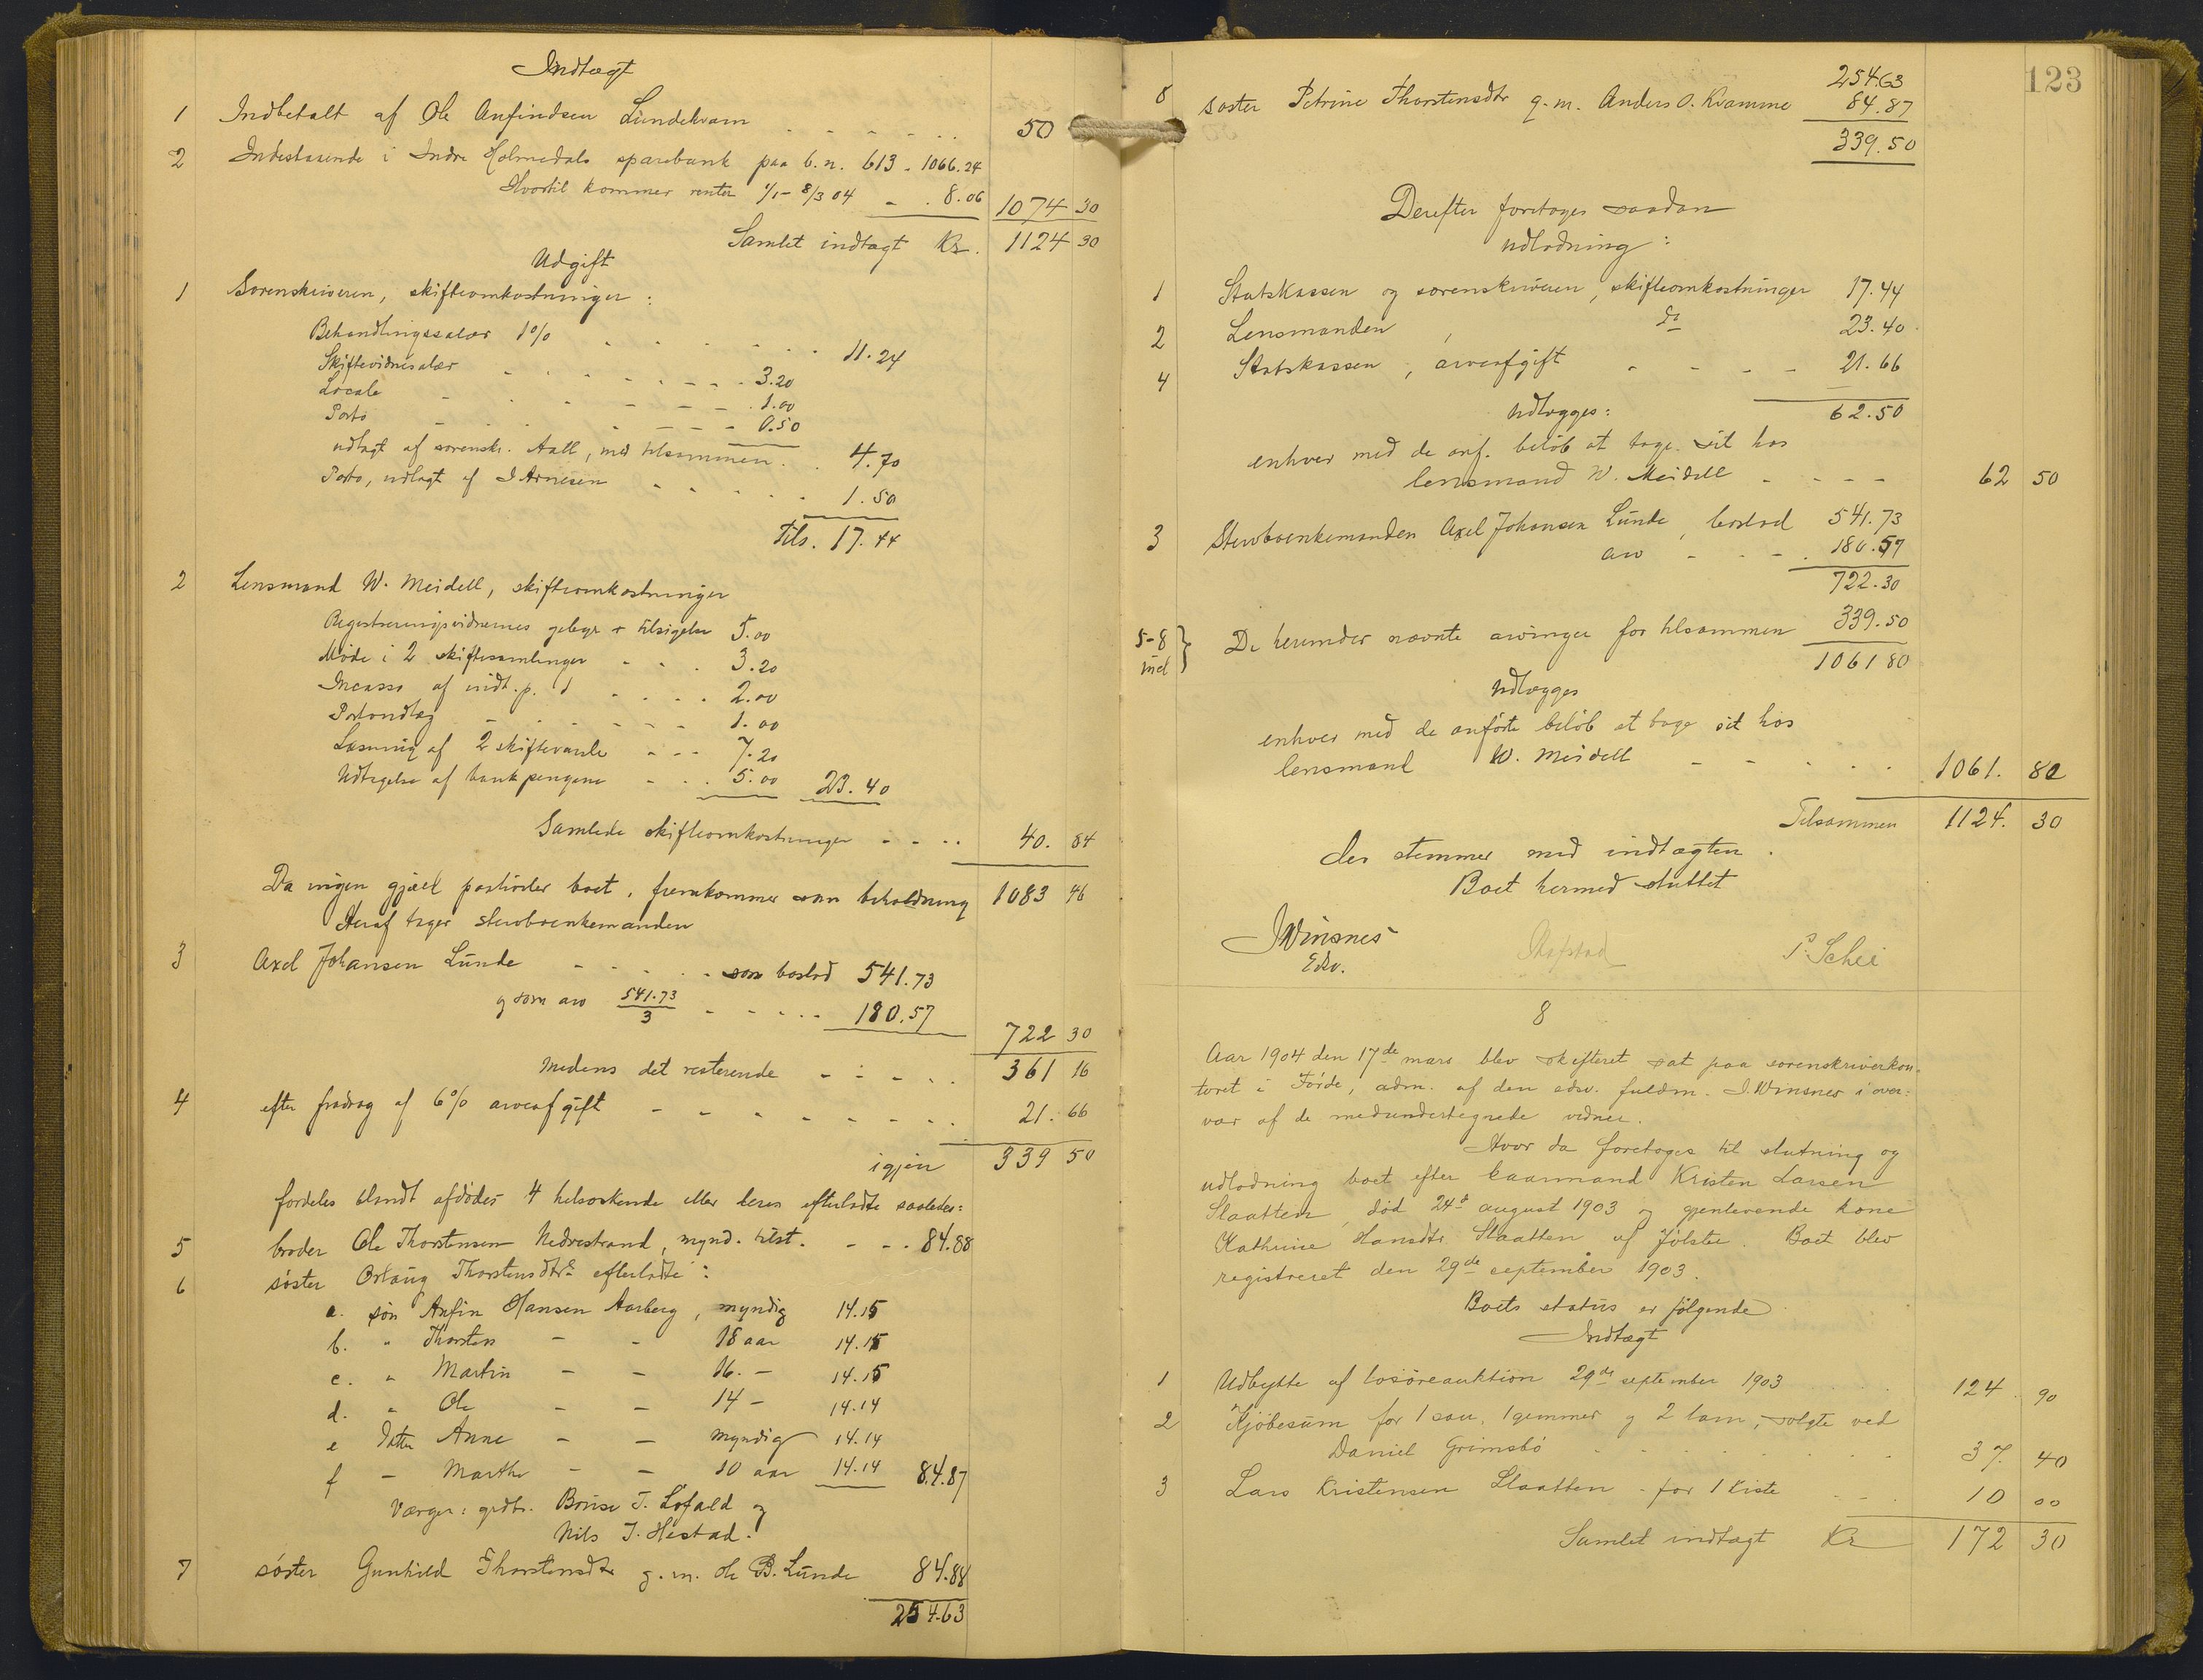 Indtægt
1 Indbetalt af Ole Anfindsen Lundekvam - - - - - - 50
2 Indestaaende i Indre Holmedals sparebank paa b.n. 613 - 1066.24
Hvortil kommer renter 1/1 - 8/3 04 - . 8.06 1074 30
Samlet indtægt Kr. 1124 30
Udgift
1 Sorenskriveren, skifteomkostninger :
Behandlingssalær 1% - - - - - - 11.24
Skiftevidnesalær - - - - - - - 3.20
Locale - - - - - - 1.00
Porto - - - - - - 0.50
udlagt af sorenskr. Aall, med tilsammen . . 4.70
Porto, udlagt af J Arnesen - - - - - 1.50
Tils. 17.44
2 Lensmand W. Meidell, skifteomkostninger
Registreringsvidnernes gebyr + tilsigelse 5.00
Møde i 2 skiftesamlinger - - . 3.20
Incasso af indt.p. 1 - - - . 2.00
Portoudlæg - - - - - - 1.00
Læsning af 2 skiftevarsle - - - 7.20
Udtagelse af bankpengene - - . 5.00 23.40
Samlede skifteomkostninger - - - . 40. 84
Da ingen gjæld paahviler boet, fremkommer som beholdning 1083 46
Heraf tager stervboenkemanden
3 Axel Johansen Lunde - - - - - som boslod 541.73
og som arv 541.73/3 - - - - - 180.57
722 30
Medens det resterende - - - - . 361 16
4 efter fradrag af 6% arveafgift - - - - - - - . 21. 66
igjen 339 50
fordeles blandt afdødes 4 helsøskende eller deres efterladte saaledes:
5 broder Ole Thorstensen Nedrestrand, mynd. tilst. - - - 84.88
6 søster Orlaug Thorstensdtrs efterladte :
a. søn Anfin Hansen Aarberg, myndig 14.15
b. " Thorsten - - 18 aar 14.15
c. " Martin - - 16. - 14.15
d. " Ole - - 14 - 14.14
e datter Anne - - myndig 14.14
f - Marthe - - 10 aar 14.14 84.87
Værger: grdbr. T. Lofald og
Nils J. Hestad.
7 søster Gunhild Thorstensdtr g. m. Ole B. Lunde 84.88
254.63
123
254.63
8 søster Petrine Thorstensdtr g. m. Anders O. Kvamme 84.87
339.50
Derefter foretages saadan
udlodning :
1 Statskassen og sorenskriveren, skifteomkostninger 17.44
2 Lensmanden , do 23.40
4 Statskassen, arveafgift - - - - 21.66
Udlægges: 62.50
enhver med de anf. beløb at tage sit hos
lensmand W. Meidell - - - - 62 50
3 Stervboenkemanden Axel Johansen Lunde, boslod 541.73
arv - - - . 180.57
722.30
5-8 incl } De herunder nævnte arvinger for tilsammen 339.50
1061 80
Udlægges
enhver med de anførte beløb at tage sit hos
lensmand W. Meidell - - . . . 1061. 80
Tilsammen 1124. 30
der stemmer med indtægten .
Boet hermed sluttet
JWinsnes
Edsv.
P. Schei
8
Aar 1904 den 17de mars blev skifteret sat paa sorenskriverkon-
toret i Førde, adm. af den edsv. fuldm. J. Winsnes i over-
vær af de medundertegnede vidner.
Hvor da foretoges til slutning og
udlodning boet efter kaarmand Kristen Larsen
Slaatten, død 24de august 1903 og gjenlevende kone
Kathrine Hansdtr. Slaatten af Jølster. Boet blev
registreret den 29de september 1903.
Boets status er følgende
Indtægt
1 Udbytte af løsøreauktion 29de september 1903 . . . . 124 . 90
2 Kjøbesum for 1 sau, 1 gemmer og 2 lam, solgte ved
Daniel Grimsbø . . . . . . . 37. 40
3 Lars Kristensen Slaatten - for 1 kiste - - . 10 00
Samlet indtægt Kr 172 30